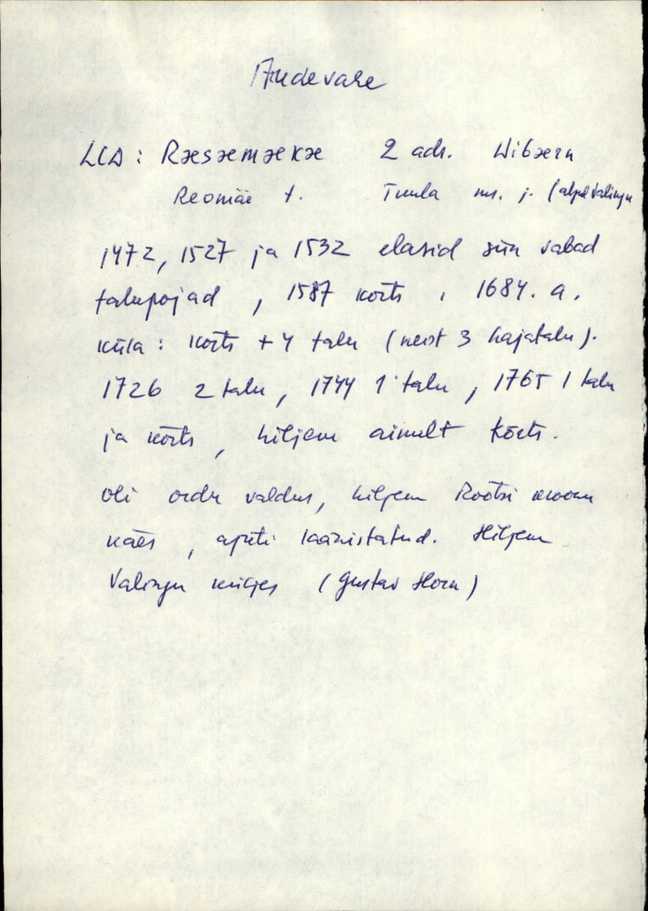 Andevare
LCD : Ræsæmækæ 2 adr. Wibærn
Reomäe t. Tuula ms. j. (alpul Valingu
1472, 1527 ja 1532 elasid siin vabad
talupojad , 1587 kõrts , 1684. a.
küla : kõrts + 4 talu (neist 3 hajatalu).
1726 2 talu , 1744 1 talu , 1765 1 talu
ja kõrts , hiljem ainult kõrts.
Oli ordu valdus, hiljem Rootsi krooni
käes , ajuti läänistatud. Hiljem
Valingu küljes (Gustav Horn)